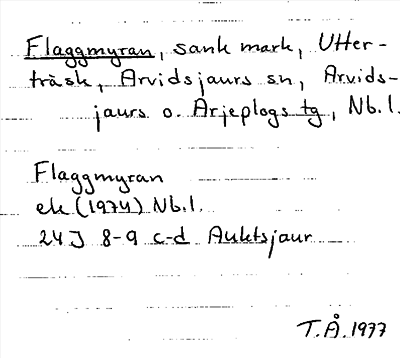 Flaggmyran, sank mark, Utter-
träsk, Arvidsjaurs sn, Arvids-
jaurs o. Arjeplogs tg, Nb.l.
Flaggmyran
ek (1974) Nb.l.
24J 8-9 c-d Auktsjaur
T.Å. 1977